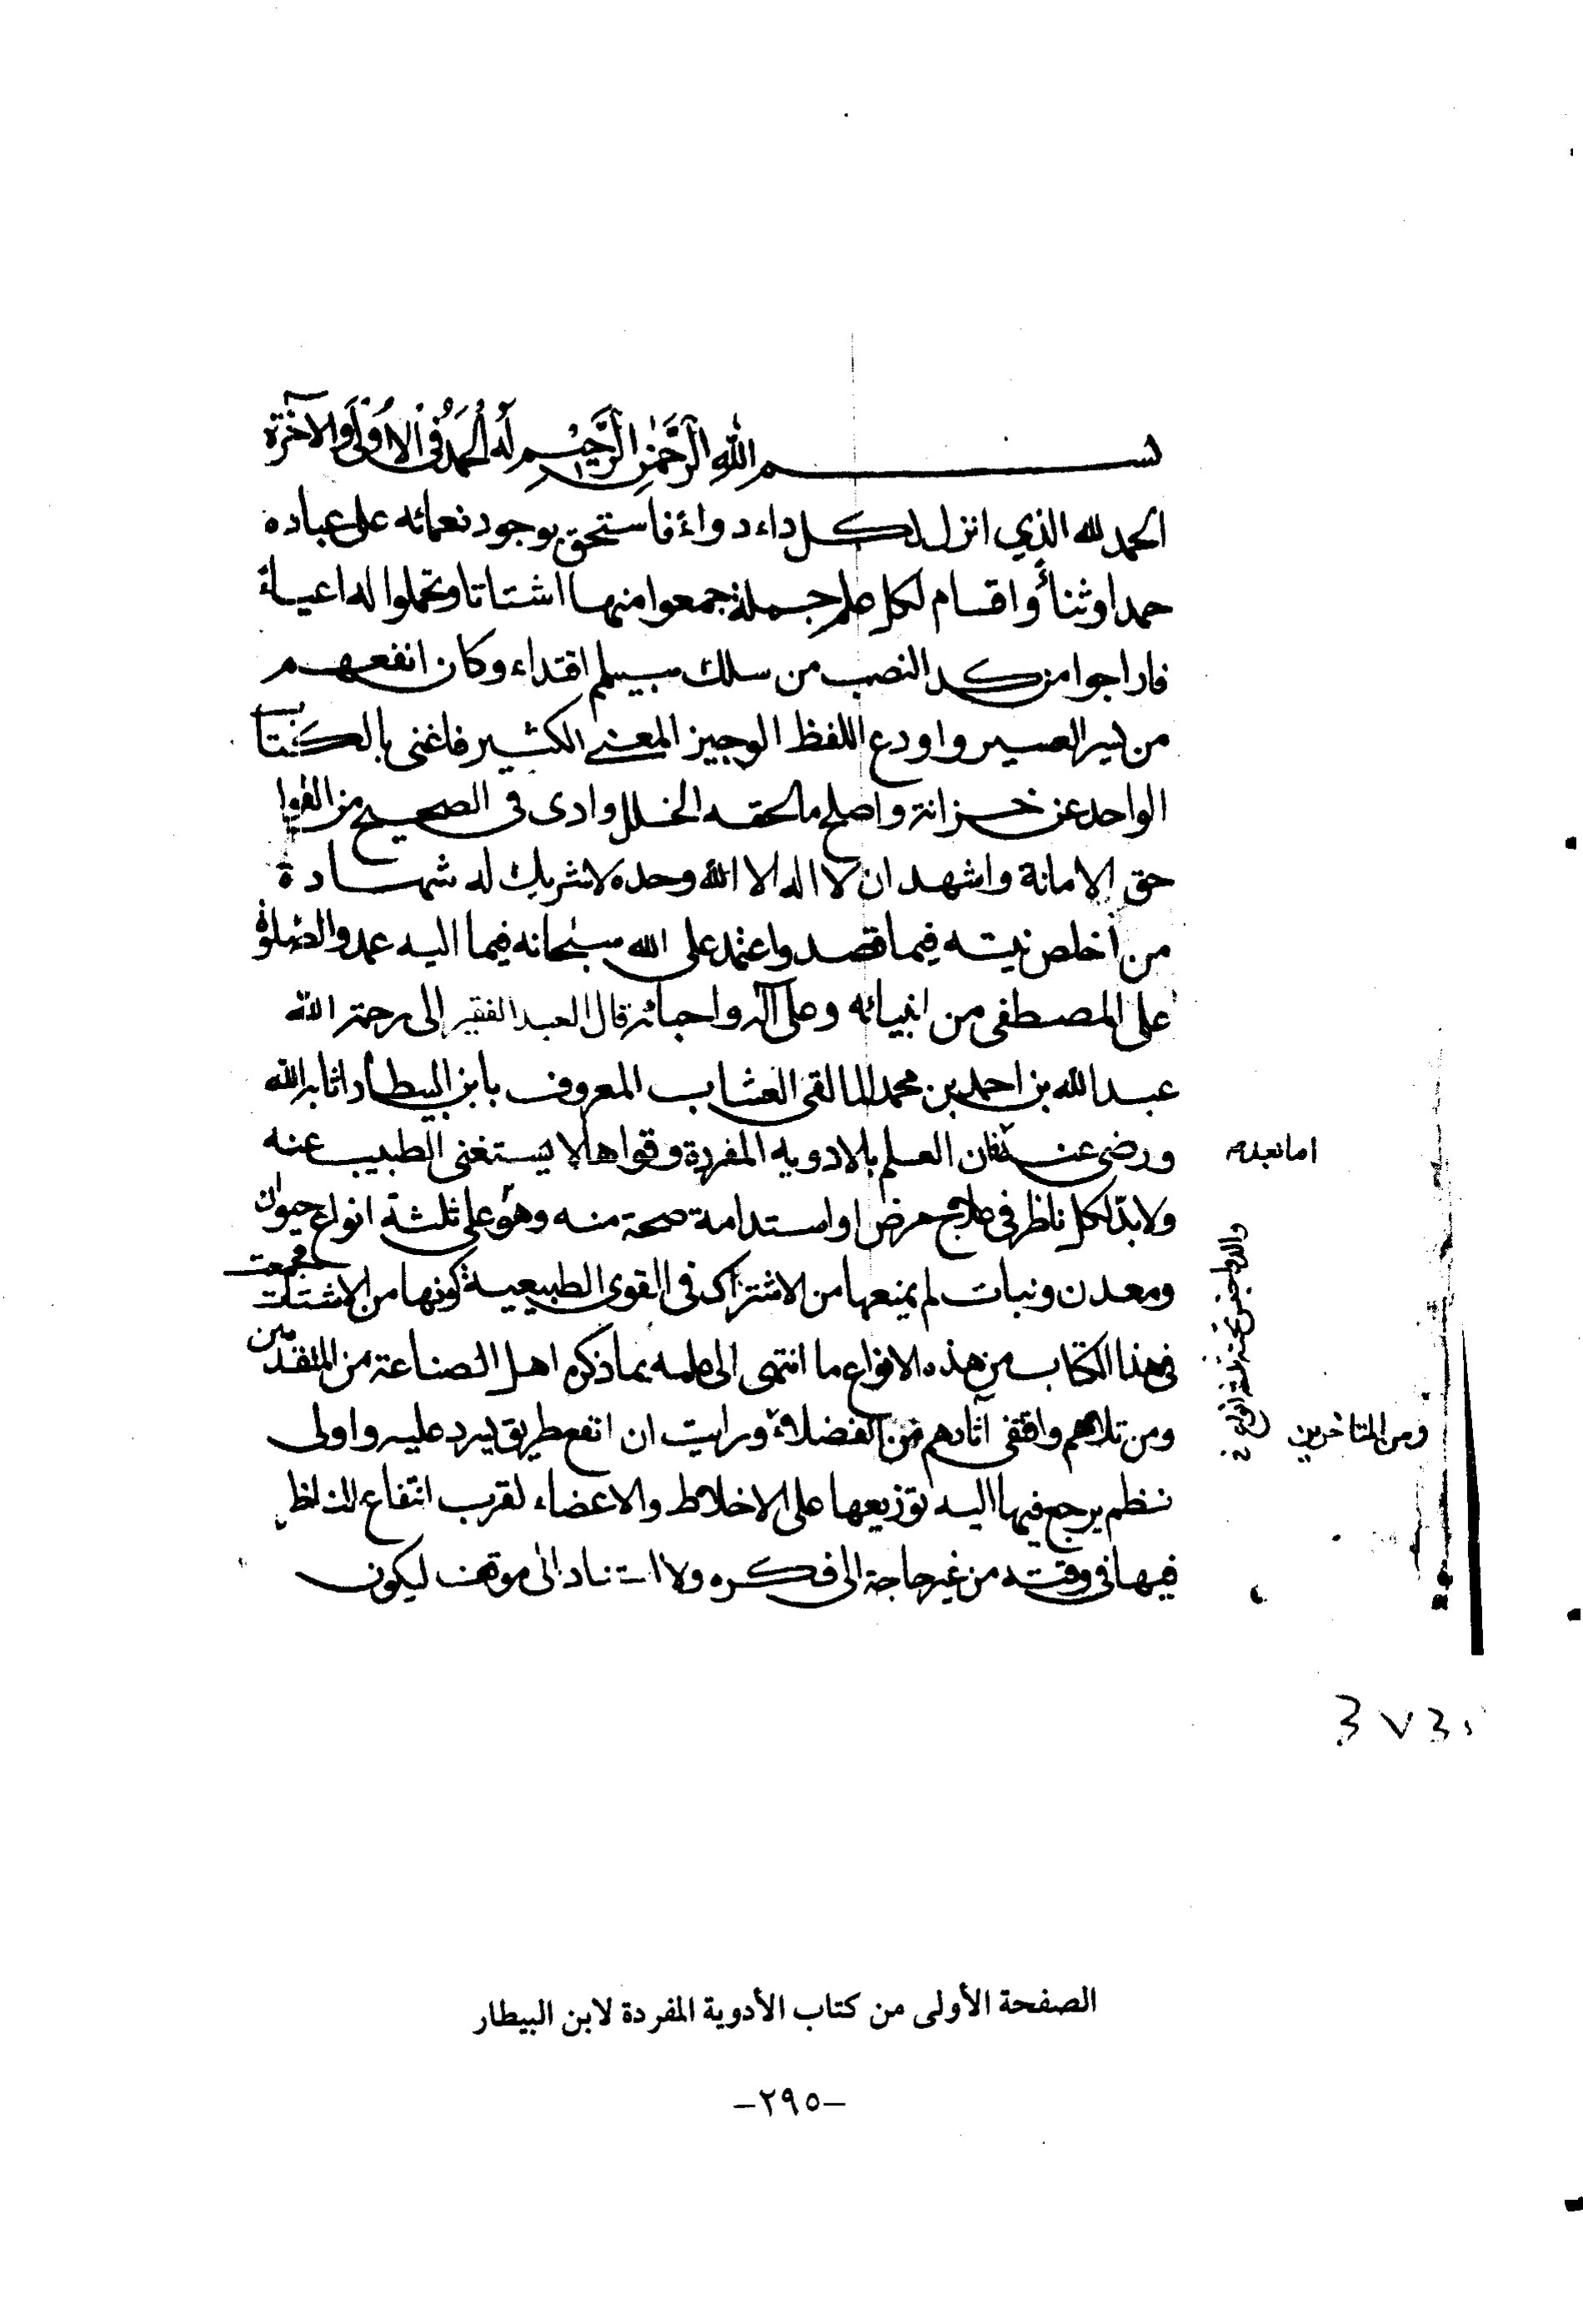 بسم الله الرحمن الرحيم له الحمد في الاولى والآخرة
الحمد لله الذي انزل لكل داء دواء فاستحق بوجود نعمائه على عباده
حمدا وثناء واقسام لكل علم جملة جمعوا منها اشتاتا وتحملوا له اعياء
فاراحوا من كد النصب من سلك سبيلهم اقتداء وكان انفعهم
من يسر العسير واودع اللفظ الوجيز المعنى الكثير فاغنى بالكتاب
الواحد عن خزانة واصلح ما لحقه الخلل وادى في الصحيح من
حق الامانة واشهد ان لا اله الا الله وحده لا شريك له شهادة
من أخلص نيته فيما قصد واعتمد على الله سبحانه فيما اليه عمد والصلوة
على المصطفى من انبيائه وعلى آله واحبائه قال العبد الفقير إلى رحمة الله
عبد الله بن احمد بن محمد المالقى العشاب المعروف بابن البيطار اثابه الله
ورضى عنه فان العلم بالادويه المفردة وقواها لا يستغنى الطبيب عنه
اما بعد
ولا بد لكل ناظر في علاج مرض او استدامة صحة منه وهو على ثلثة انواع حيوان
ومعدن ونبات لم يمنعها من الاشتراك في القوى الطبيعية كونها من الاشتات فجمعت
في هذا الكتاب من هذه الانواع ما انتهى الى علمه بما ذكره اهل الصناعة من المتقدمين
ومن تلاهم واقتفى آثارهم من الفضلاء ورايت ان انفع طريق يرد عليه واولى
ومن المتاخرين
نظم يرجع فيها اليه توزيعها على الاخلاط والاعضاء لقرب انتفاع الناظر
فيها في وقته من غير حاجة الى فكره ولا استناد الى موقف ليكون
الصفحة الأولى من كتاب الأدوية المفردة لابن البيطار
-٢٩٥-